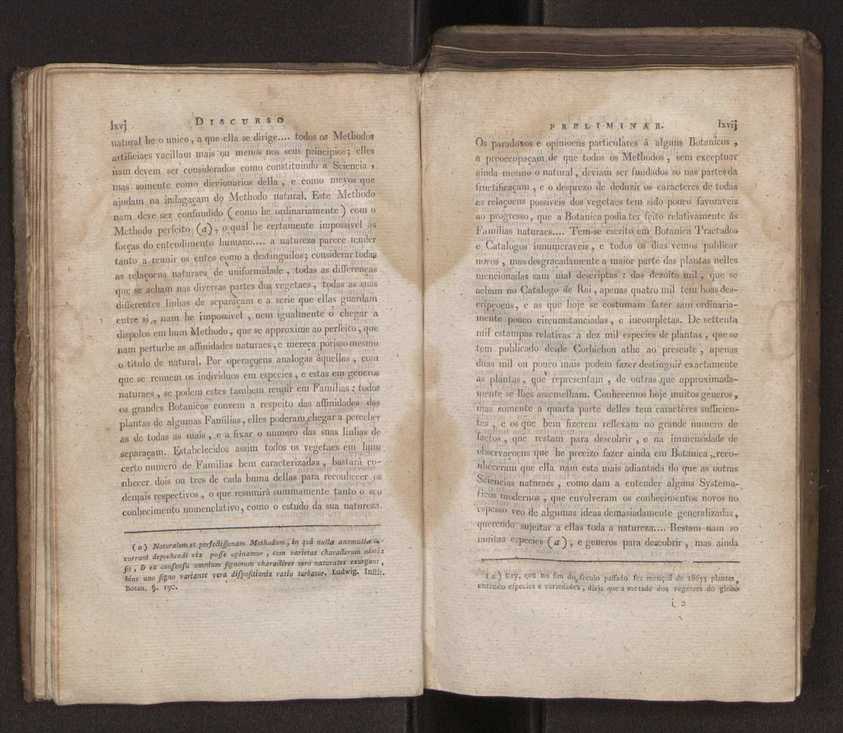 lxvj DISCURSO
natural he o unico, a que ella se dirige.... todos os Methodos
artificiaes vacillam mais ou menos nos seus principios; elles
nam devem ser considerados como constituindo a Sciencia,
mas somente como diccionarios della, e como meyos que
ajudam na indagaçam do Methodo natural. Este Methodo
nam deve ser confundido (como he ordinariamente) com o
Methodo perfeito (a), o qual he certamente impossivel ás
forças do entendimento humano.... a natureza parece tender
tanto a reunir os entes como a destinguilos; considerar todas
as relaçoens naturaes de uniformidade, todas as differenças
que se acham nas diversas partes dos vegetaes, todas as suas
differentes linhas de separaçam e a serie que ellas guardam
entre si, nam he impossivel, nem igualmente o chegar a
dispolos em hum Methodo, que se approxime ao perfeito, que
nam perturbe as affinidades naturaes, e mereça porisso mesmo
o titulo de natural. Por operaçoens analogas áquellas, com
que se reunem os individuos em especies, e estas em generos
naturaes, se podem estes tambem reunir em Familias: todos
os grandes Botanicos convem a respeito das affinidades das
plantas de algumas Familias, elles poderam chegar a perceber
as de todas as mais, e a fixar o numero das suas linhas de
separaçam. Estabelecidos assim todos os vegetaes em hum
certo numero de Familias bem caracterizadas, bastará co-
nhecer dois ou tres de cada huma dellas para reconhecer os
demais respectivos, o que resumirá summamente tanto o seu
conhecimento nomenclativo, como o estudo da sua natureza.
(a) Naturalem et perfectissimam Methodum, in quâ nullæ anomaliæ oc-
currant deprehendi vix posse opinamur, cum varietas characterum nimis
sit, & ex consensu omnium signorum characteres verè naturales exurgant,
hinc uno signo variante vera dispositionis ratio turbatur. Ludwig. Instit.
Botan. §. 190.
PRELIMINAR. lxvij
Os paradoxos e opinioens particulares á alguns Botanicos,
a preoccupaçam de que todos os Methodos, sem exceptuar
ainda mesmo o natural, deviam ser fundados só nas partes da
fructificaçam, e o desprezo de deduzir os caractéres de todas
as relaçoens possiveis dos vegetaes tem sido pouco favoraveis
ao progresso, que a Botanica podia ter feito relativamente ás
Familias naturaes.... Tem-se escrito em Botanica Tractados
e Catalogos innumeraveis, e todos os dias vemos publicar
novos, mas desgraçadamente a maior parte das plantas nelles
mencionadas sam mal descriptas: das dezoito mil, que se
acham no Catalogo de Rai, apenas quatro mil tem boas des-
cripçoens, e as que hoje se costumam fazer sam ordinaria-
mente pouco circumstanciadas, e incompletas. De settenta
mil estampas relativas a dez mil especies de plantas, que se
tem publicado desde Corbichon athe ao presente, apenas
duas mil ou pouco mais podem fazer destinguir exactamente
as plantas, que representam, de outras que approximada-
mente se lhes assemelham. Conhecemos hoje muitos generos,
mas somente a quarta parte delles tem caractéres sufficien-
tes, e os que bem fizerem reflexam no grande numero de
factos, que restam para descobrir, e na immensidade de
observaçoens que he preciso fazer ainda em Botanica, reco-
nheceram que ella nam esta mais adiantada do que as outras
Sciencias naturaes, como dam a entender alguns Systema-
ticos modernos, que envolveram os conhecimentos novos no
espesso veo de algumas ideas demasiadamente generalizadas,
querendo sujeitar a ellas toda a natureza.... Restam nam só
muitas especies (a), e generos para descobrir, mas ainda
(a) Ray, que no fim do seculo passado fez mençaõ de 18655 plantas,
entrando especies e variedades, dizia que a metade dos vegetaes do globo
i 2